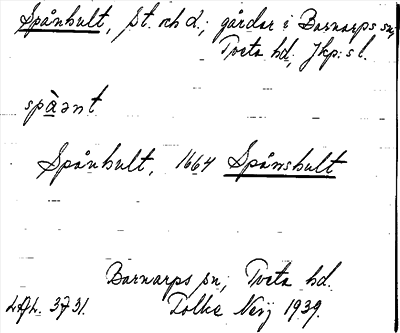 Spånhult, St. och L.; gårdar i Barnarps sn,
Tveta hd, Jkp:s l.
spànt
Spånhult, 1664 Spånshult
Barnarps sn, Tveta hd.
3731. Tolke Nerj 1939.